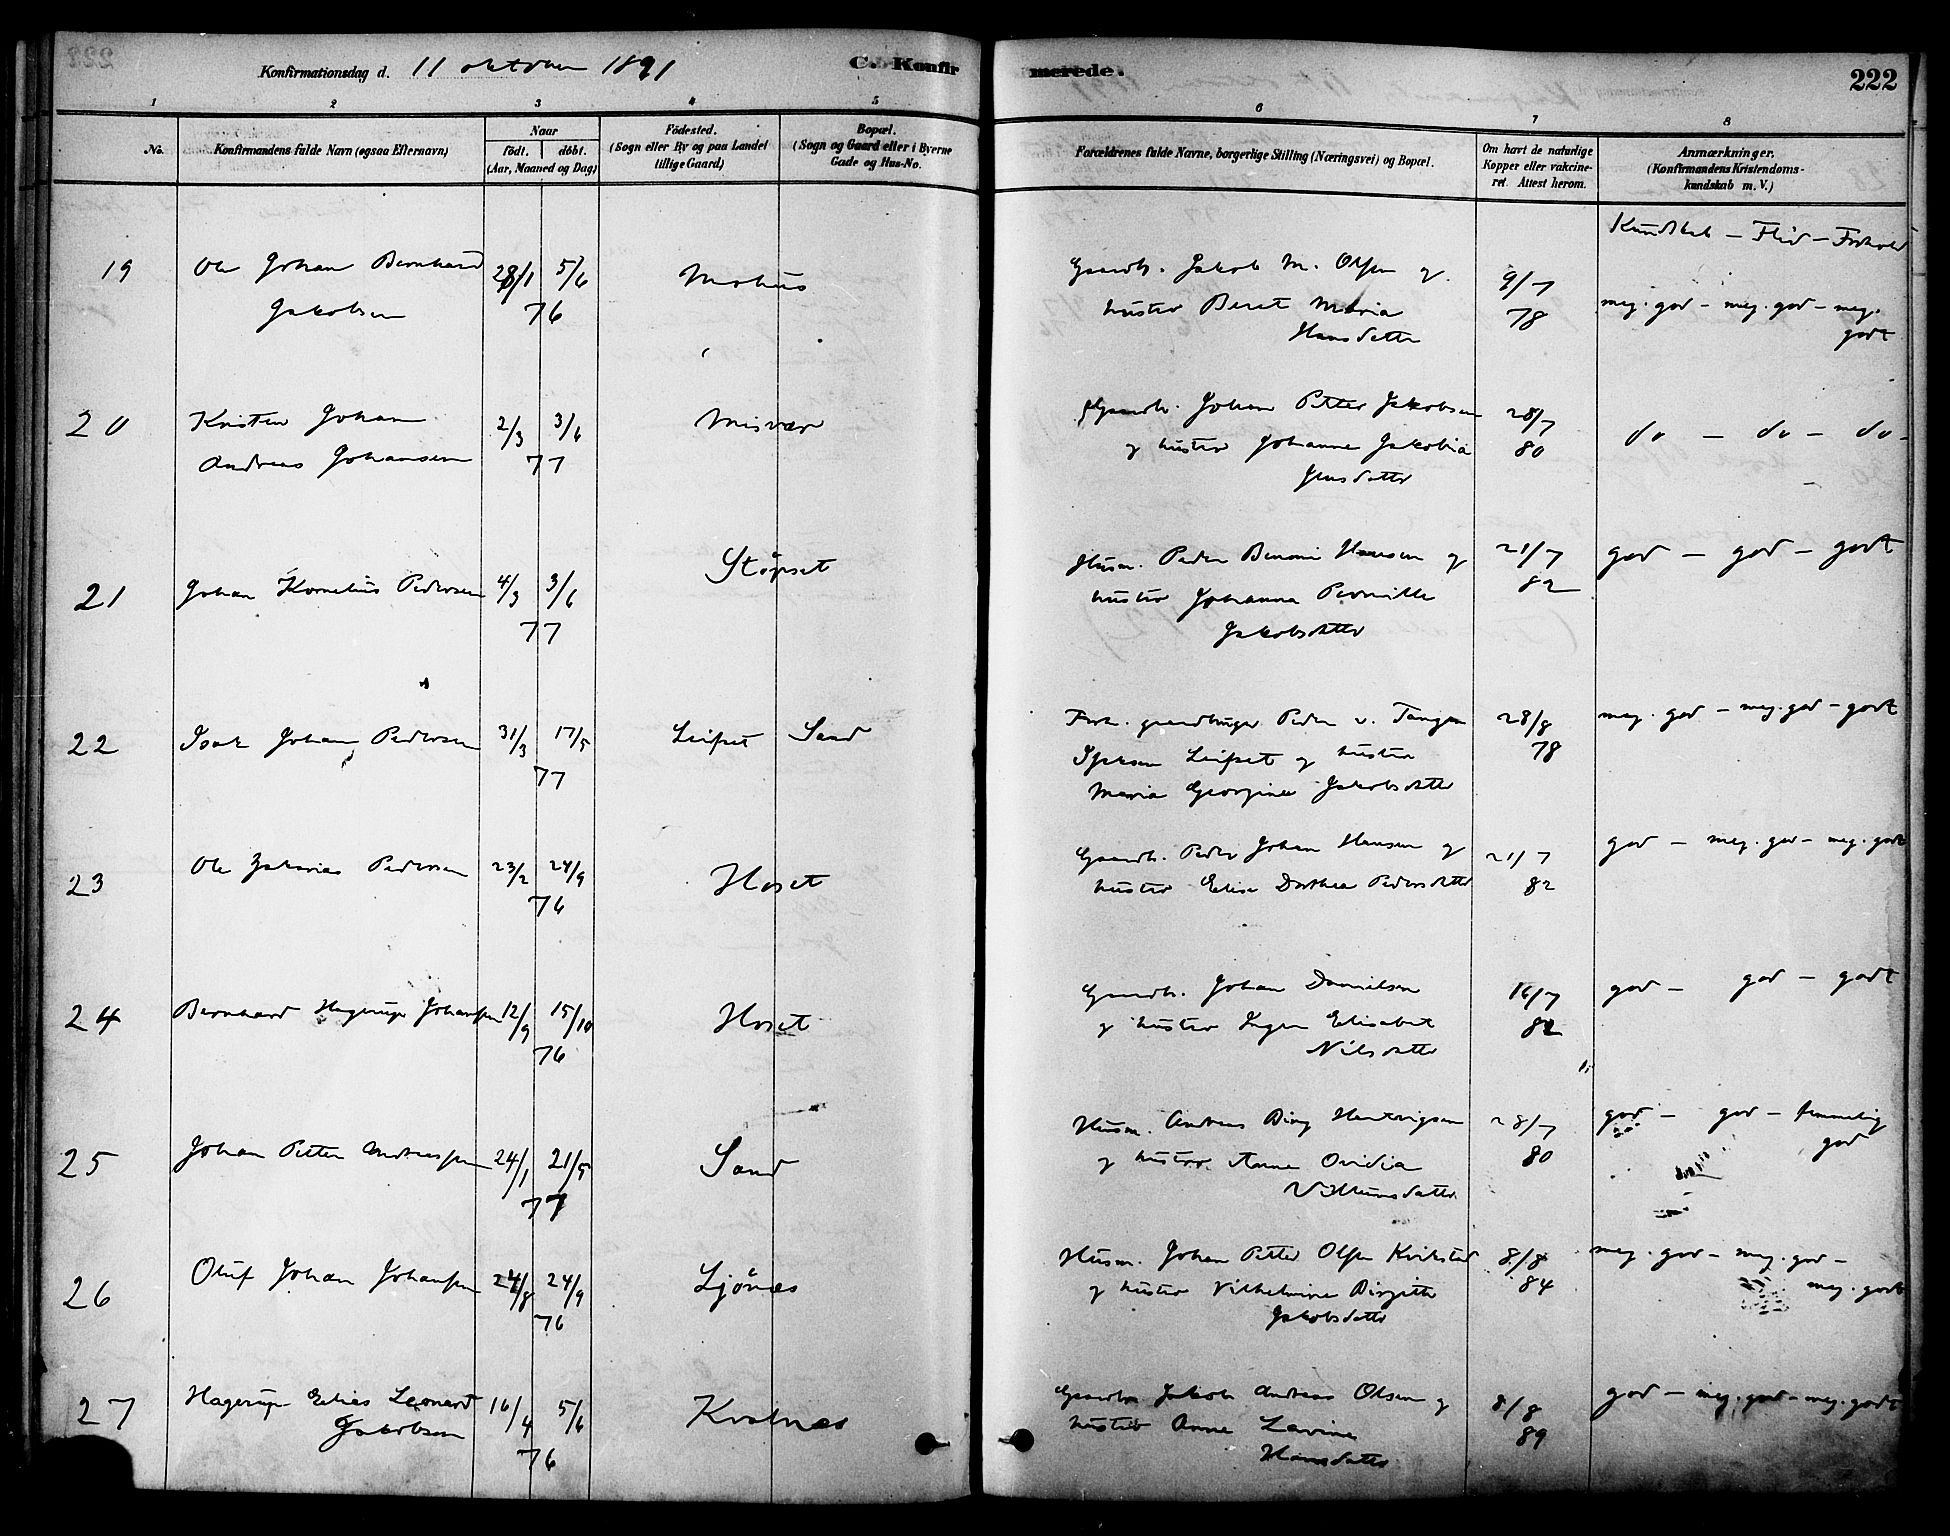 Konfirmationsdag d. 11 oktober 1891
C. Konfirmerede.
222
1 2 3 4 5 6 7 8
No.
Konfirmandens fulde Navn (ogsaa Efternavn)
Naar
födt. döbt.
(Aar, Maaned og Dag)
Födested.
(Sogn eller By og paa Landet
tillige Gaard)
Bopæl.
(Sogn og Gaard eller i Byerne
Gade og Hus-No.
Forældrenes fulde Navne, borgerlige Stilling (Næringsvei) og Bopæl.
Om havt de naturlige
Kopper eller vakcine-
ret. Attest herom.
Anmærkninger.
(Konfirmandens Kristendoms-
kundskab m. V.)
Kundskab - Flid - Forhold
19 Ole Johan Bernhard 28/1 5/6
Jakobsen 76
Gaardb. Jakob M. Olsen og 9/7
hustru Beret Maria 78 meg. god - meg. god - meg.
Hansdatter godt
20 Kristen Johan 2/3 3/6 Misvær
Andreas Johansen 77
Gaardb. Johan Petter Jakobsen 28/7
og hustru Johanna Jakobia 80 do - do - do -
Jensdatter
21 Johan Kornelius Pedersen 4/3 3/6 Störset
77
Husm. Peder Benoni Hansen og 21/7 god - god - godt
hustru Johanna Pernille 82
Jakobsdatter
22 Isak Johan Pedersen 31/3 17/5 Leifset Sand
77
Forh. gaardbruger Peder v. Tangen 28/8 meg. god - meg. god - godt
Leifset og hustru 78
Maria Georgina Jakobsdatter
23 Ole Zakarias Pedersen 23/2 24/9 Hoset
76
Gaardb. Peder Johan Hansen og 21/7 god - meg. god - meg. godt
hustru Elise Dorthea Pedersdatter 82
24 Bernhard Hagerup Johansen 12/9 15/10 Hoset
76
Gaardb. Johan Danielsen 16/7 god - god - godt
og hustru Inger Elisabet 82
Nilsdatter
25 Johan Petter Andreassen 24/1 21/5 Sand
77
Husm. Andreas Bing Hentrigsen 28/7 god - god - temmelig
og hustru Anne Ovidia 80 god
Villumsdatter
26 Oluf Johan Johansen 24/8 24/9 Ljönes
76
Husm. Johan Petter Olsen Kvikstad 8/8 meg. god - meg. god -
og hustru Vilhelmine Birgitte 84 meg. godt
Jakobsdatter
27 Hagerup Elias Leonard 16/4 5/6 Kvalnes
Jakobsen 76
Gaardb. Jakob Andreas Olsen og 8/8 god - meg. god - meg. godt
hustru Anne Lavina 89
Hansdatter